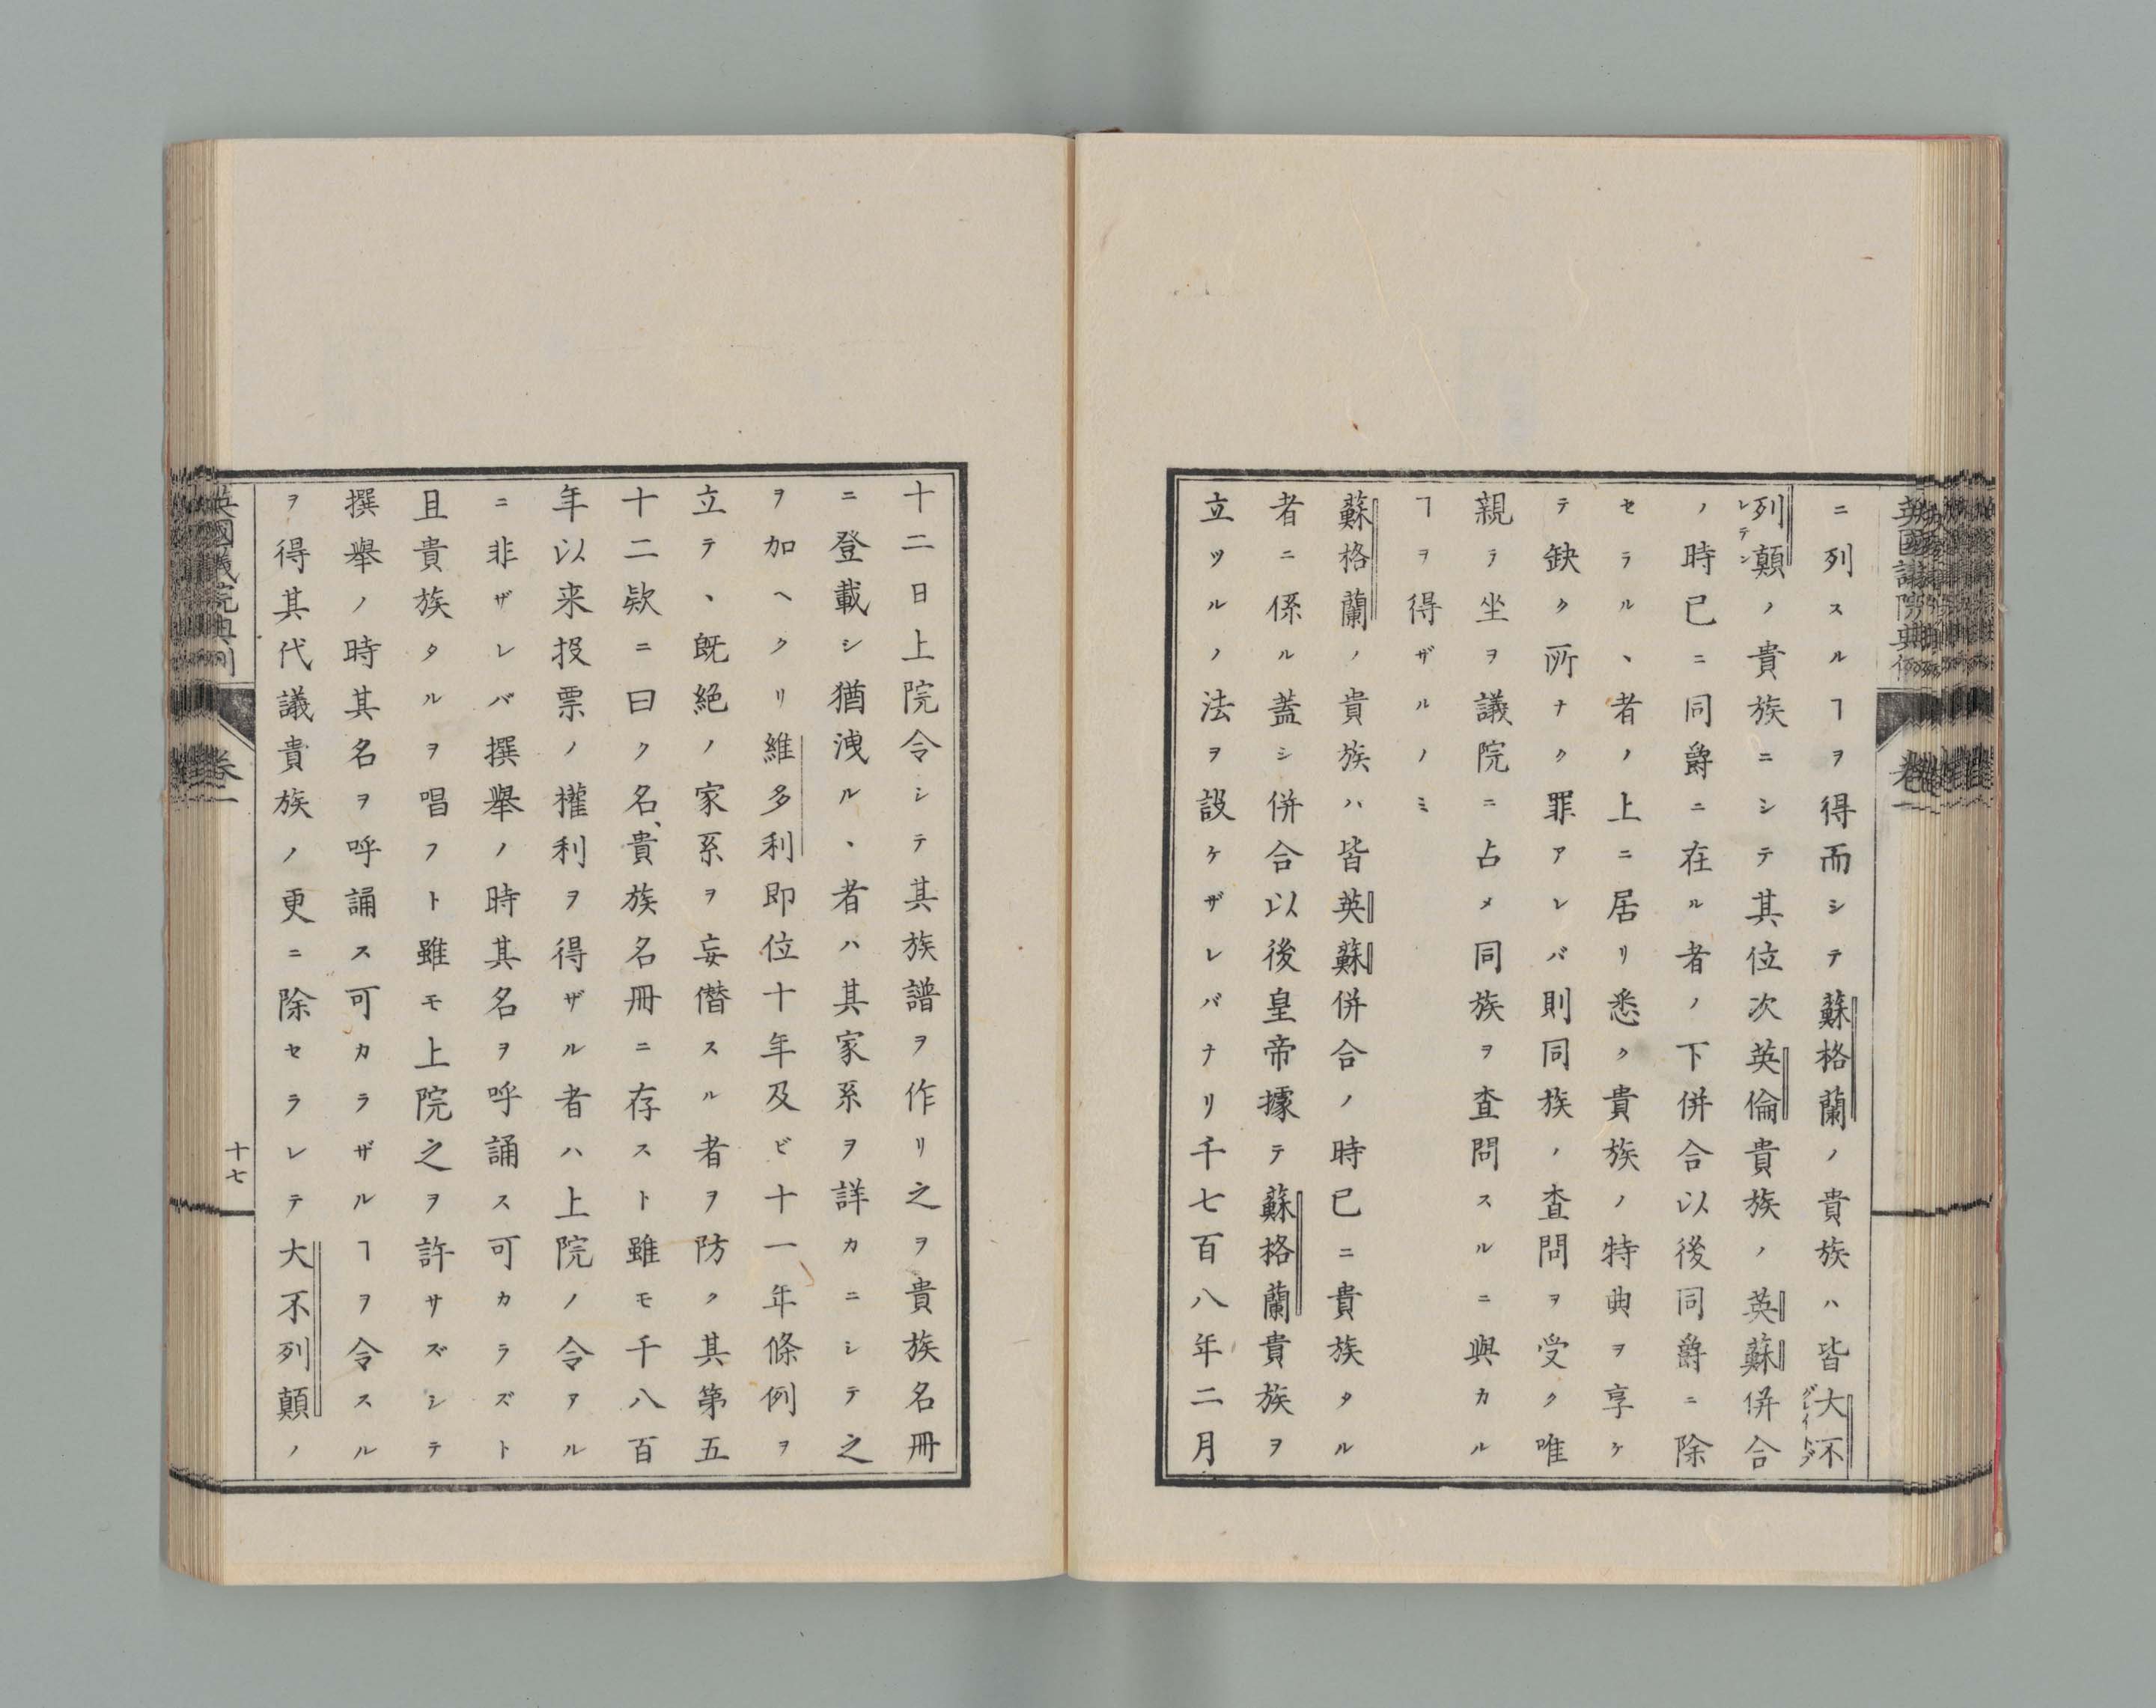 英國議院典例
卷一
ニ列スルヿヲ得而シテ蘇格蘭ノ貴族ハ皆大不
グレイトブ
列顛ノ貴族ニシテ其位次英倫貴族ノ英蘇併合
レテン
ノ時已ニ同爵ニ在ル者ノ下併合以後同爵ニ除
セラルヽ者ノ上ニ居リ悉ク貴族ノ特典ヲ享ケ
テ缺ク所ナク罪アレバ則同族ノ査問ヲ受ク唯
親ラ坐ヲ議院ニ占メ同族ヲ査問スルニ與カル
ヿヲ得ザルノミ
蘇格蘭ノ貴族ハ皆英蘇併合ノ時已ニ貴族タル
者ニ係ル蓋シ併合以後皇帝據テ蘇格蘭貴族ヲ
立ツルノ法ヲ設ケザレバナリ千七百八年二月
十二日上院令シテ其族譜ヲ作リ之ヲ貴族名冊
ニ登載シ猶洩ルヽ者ハ其家系ヲ詳カニシテ之
ヲ加ヘクリ維多利即位十年及ビ十一年條例ヲ
立テヽ既絶ノ家系ヲ妄僭スル者ヲ防ク其第五
十二欵ニ曰ク名、貴族名冊ニ存スト雖モ千八百
年以来投票ノ權利ヲ得ザル者ハ上院ノ令アル
ニ非ザレバ撰舉ノ時其名ヲ呼誦ス可カラズト
且貴族タルヲ唱フト雖モ上院之ヲ許サズシテ
撰舉ノ時其名ヲ呼誦ス可カラザルヿヲ令スル
ヲ得其代議貴族ノ更ニ除セラレテ大不列顛ノ
英國議院典例
卷一
十七